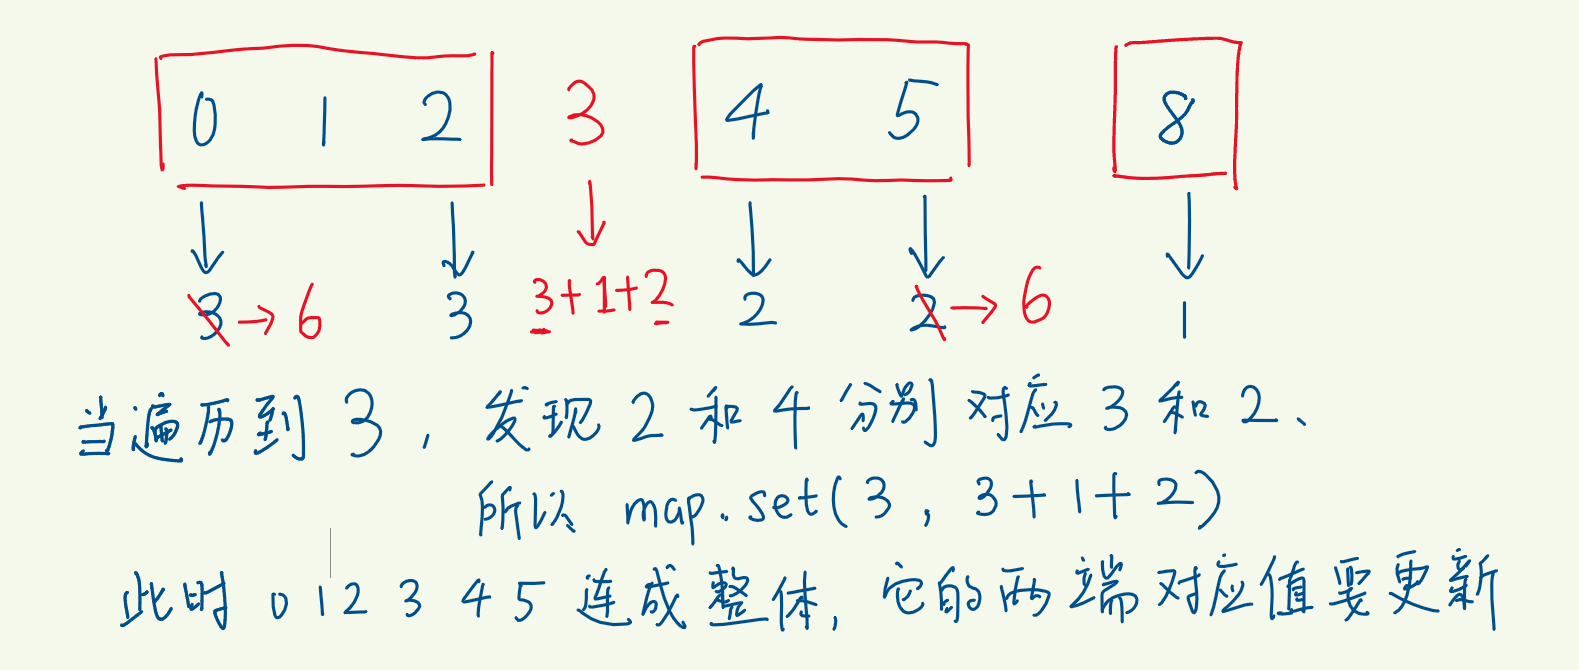 0 1 2 3 4 5 8
3→6 3 3+1+2 2 2→6 1
当遍历到 3, 发现 2 和 4 分别对应 3 和 2、
所以 map.set(3, 3+1+2)
此时 0 1 2 3 4 5 连成整体, 它的两端对应值要更新